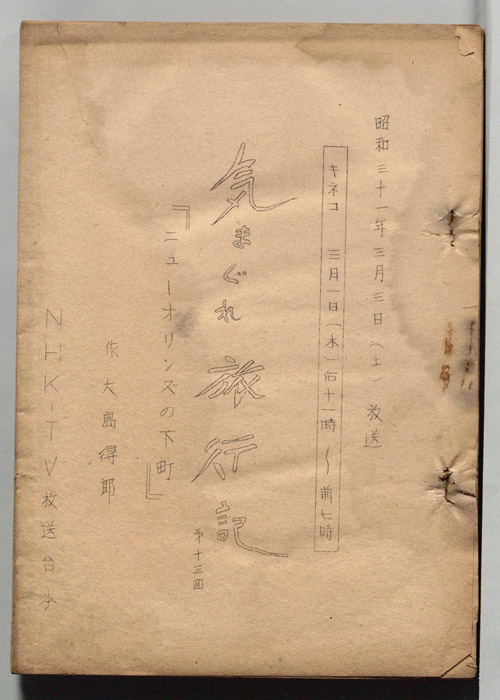 昭和三十一年三月三日(土)放送
キネコ 三月一日(木)后十一時〜前七時
気まぐれ旅行記
第十三回
『ニューオリンズの下町』
作 大島得郎
NHK-TV放送台本